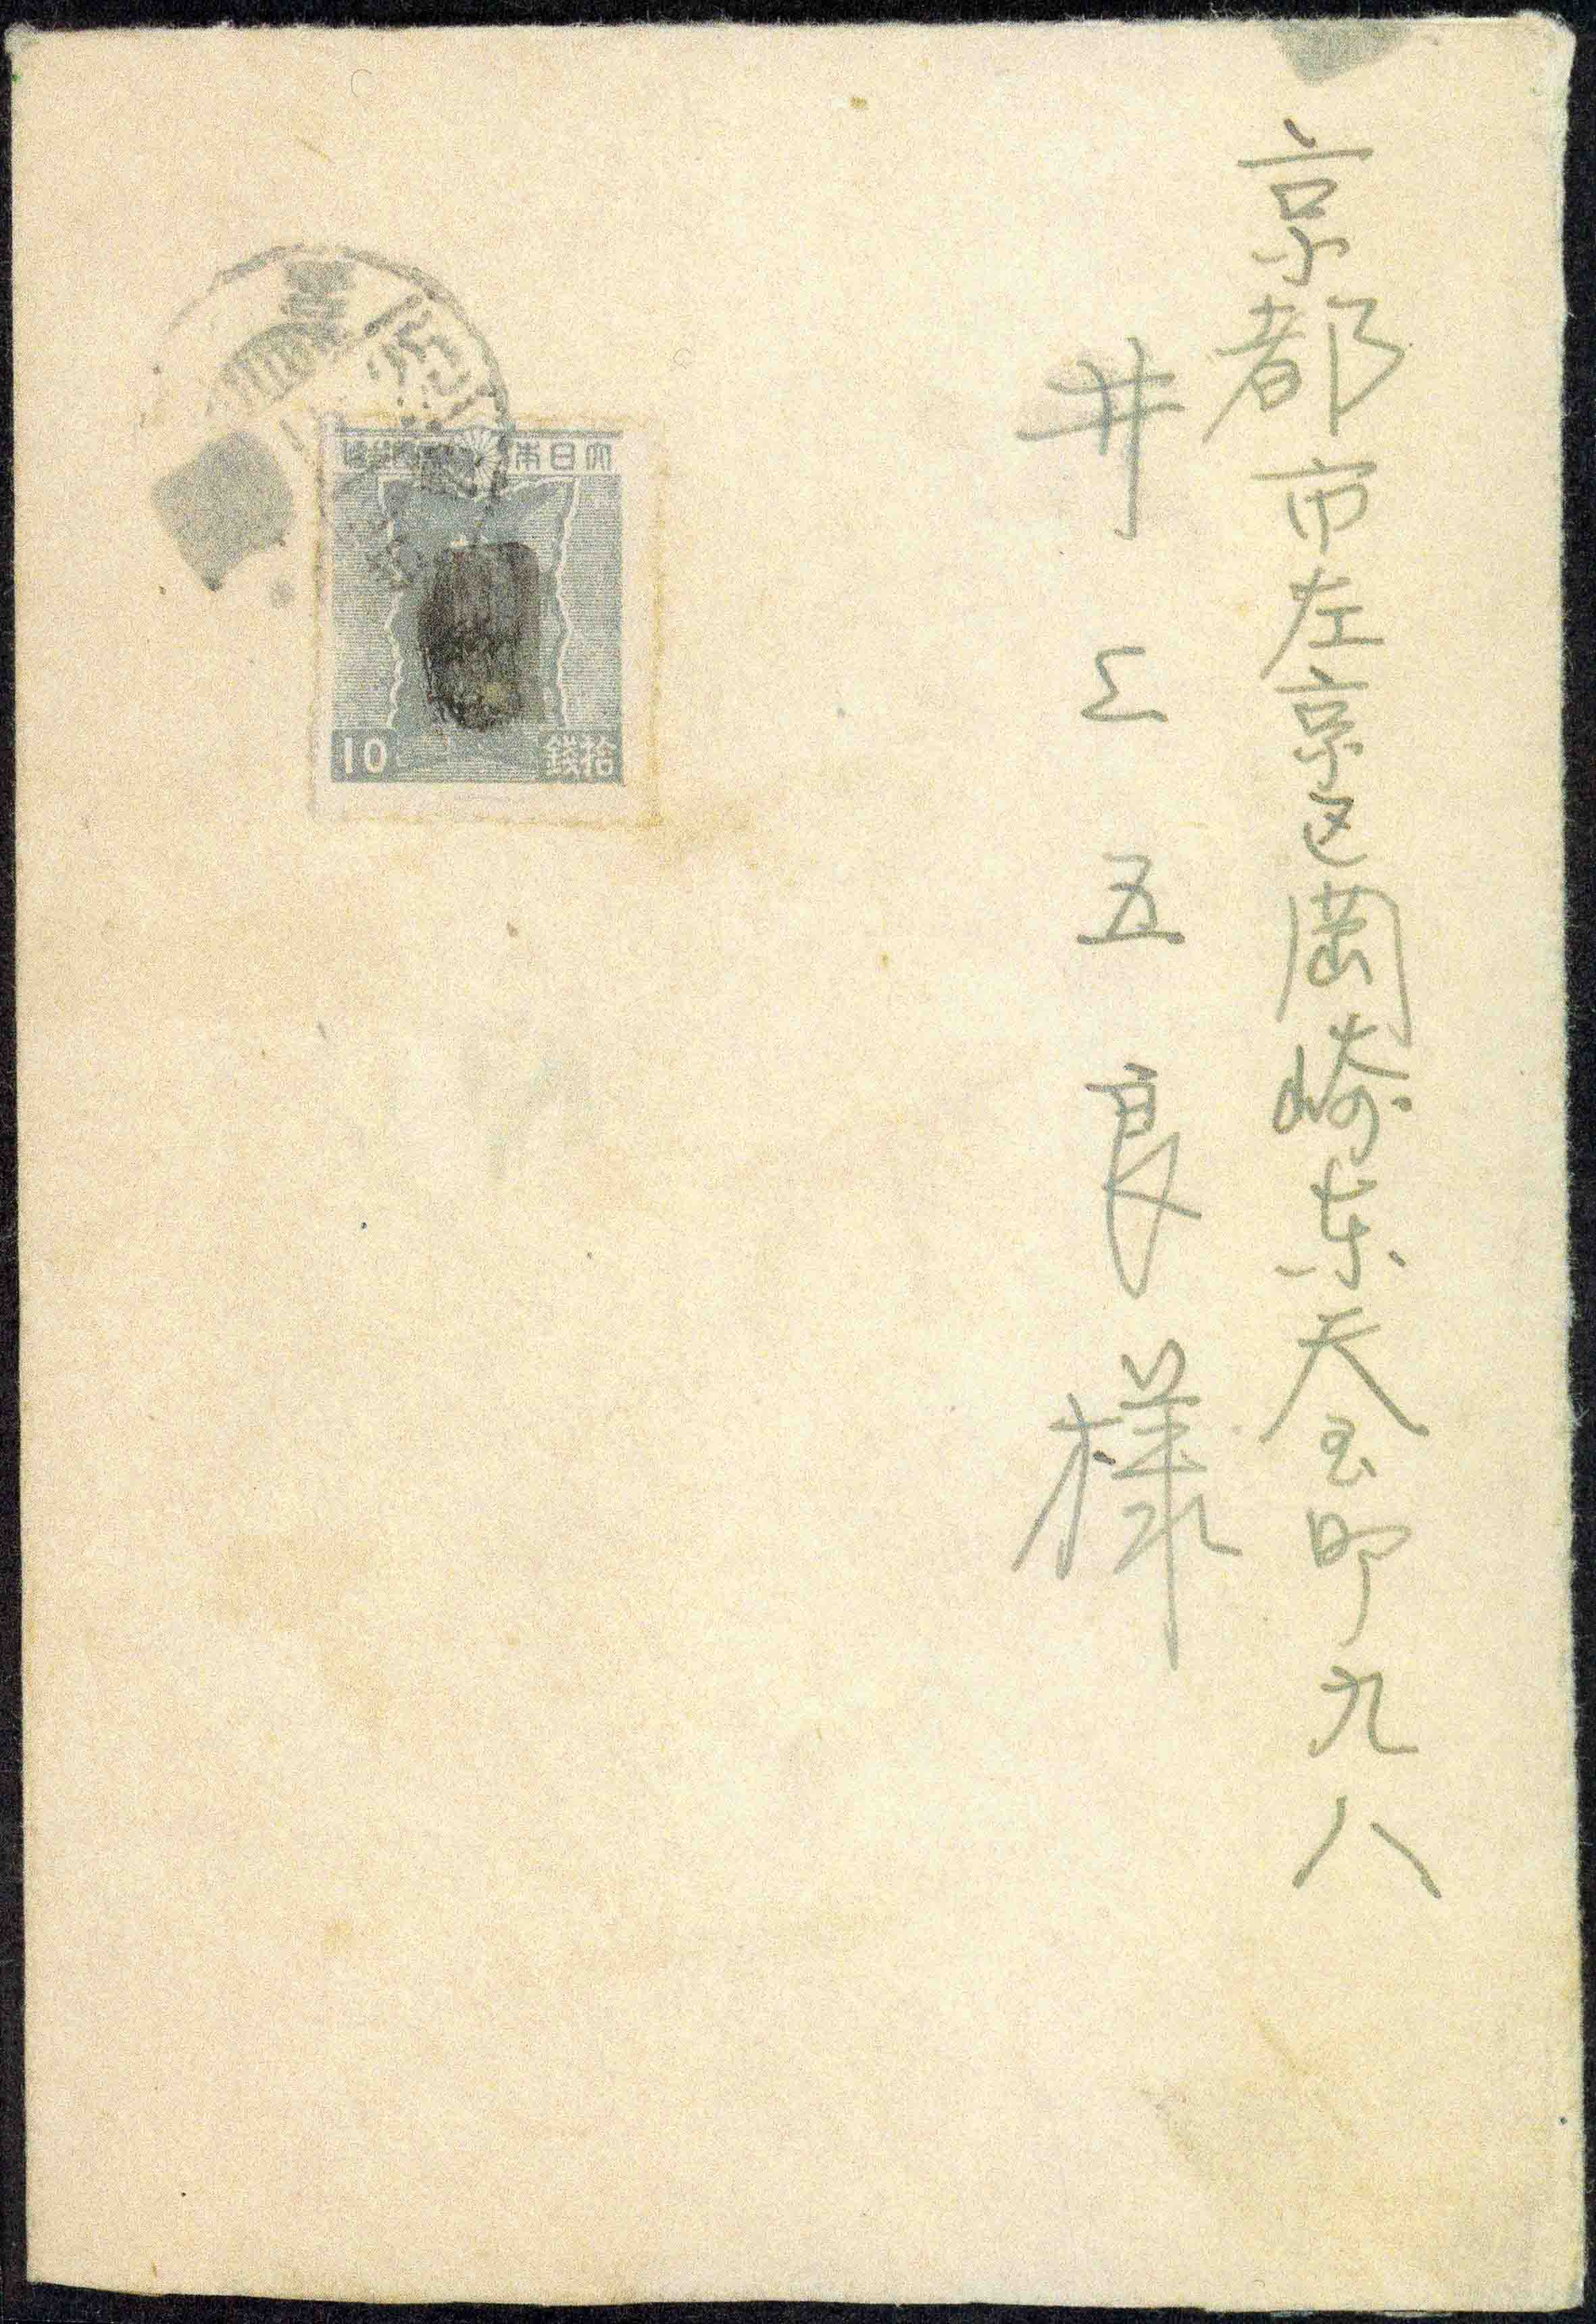 京都市左京区岡崎東天王町九八
井上五良様
大日本帝國郵便
10
拾錢